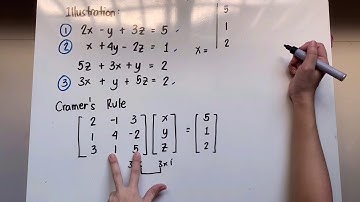 Illustration:
① 2x - y + 3z = 5
② x + 4y - 2z = 1
5z + 3x + y = 2
③ 3x + y + 5z = 2
x =
5
1
2
Cramer's Rule
[2 -1 3] [x] [5]
[1 4 -2] [y] = [1]
[3 1 5] [z] [2]
3x1